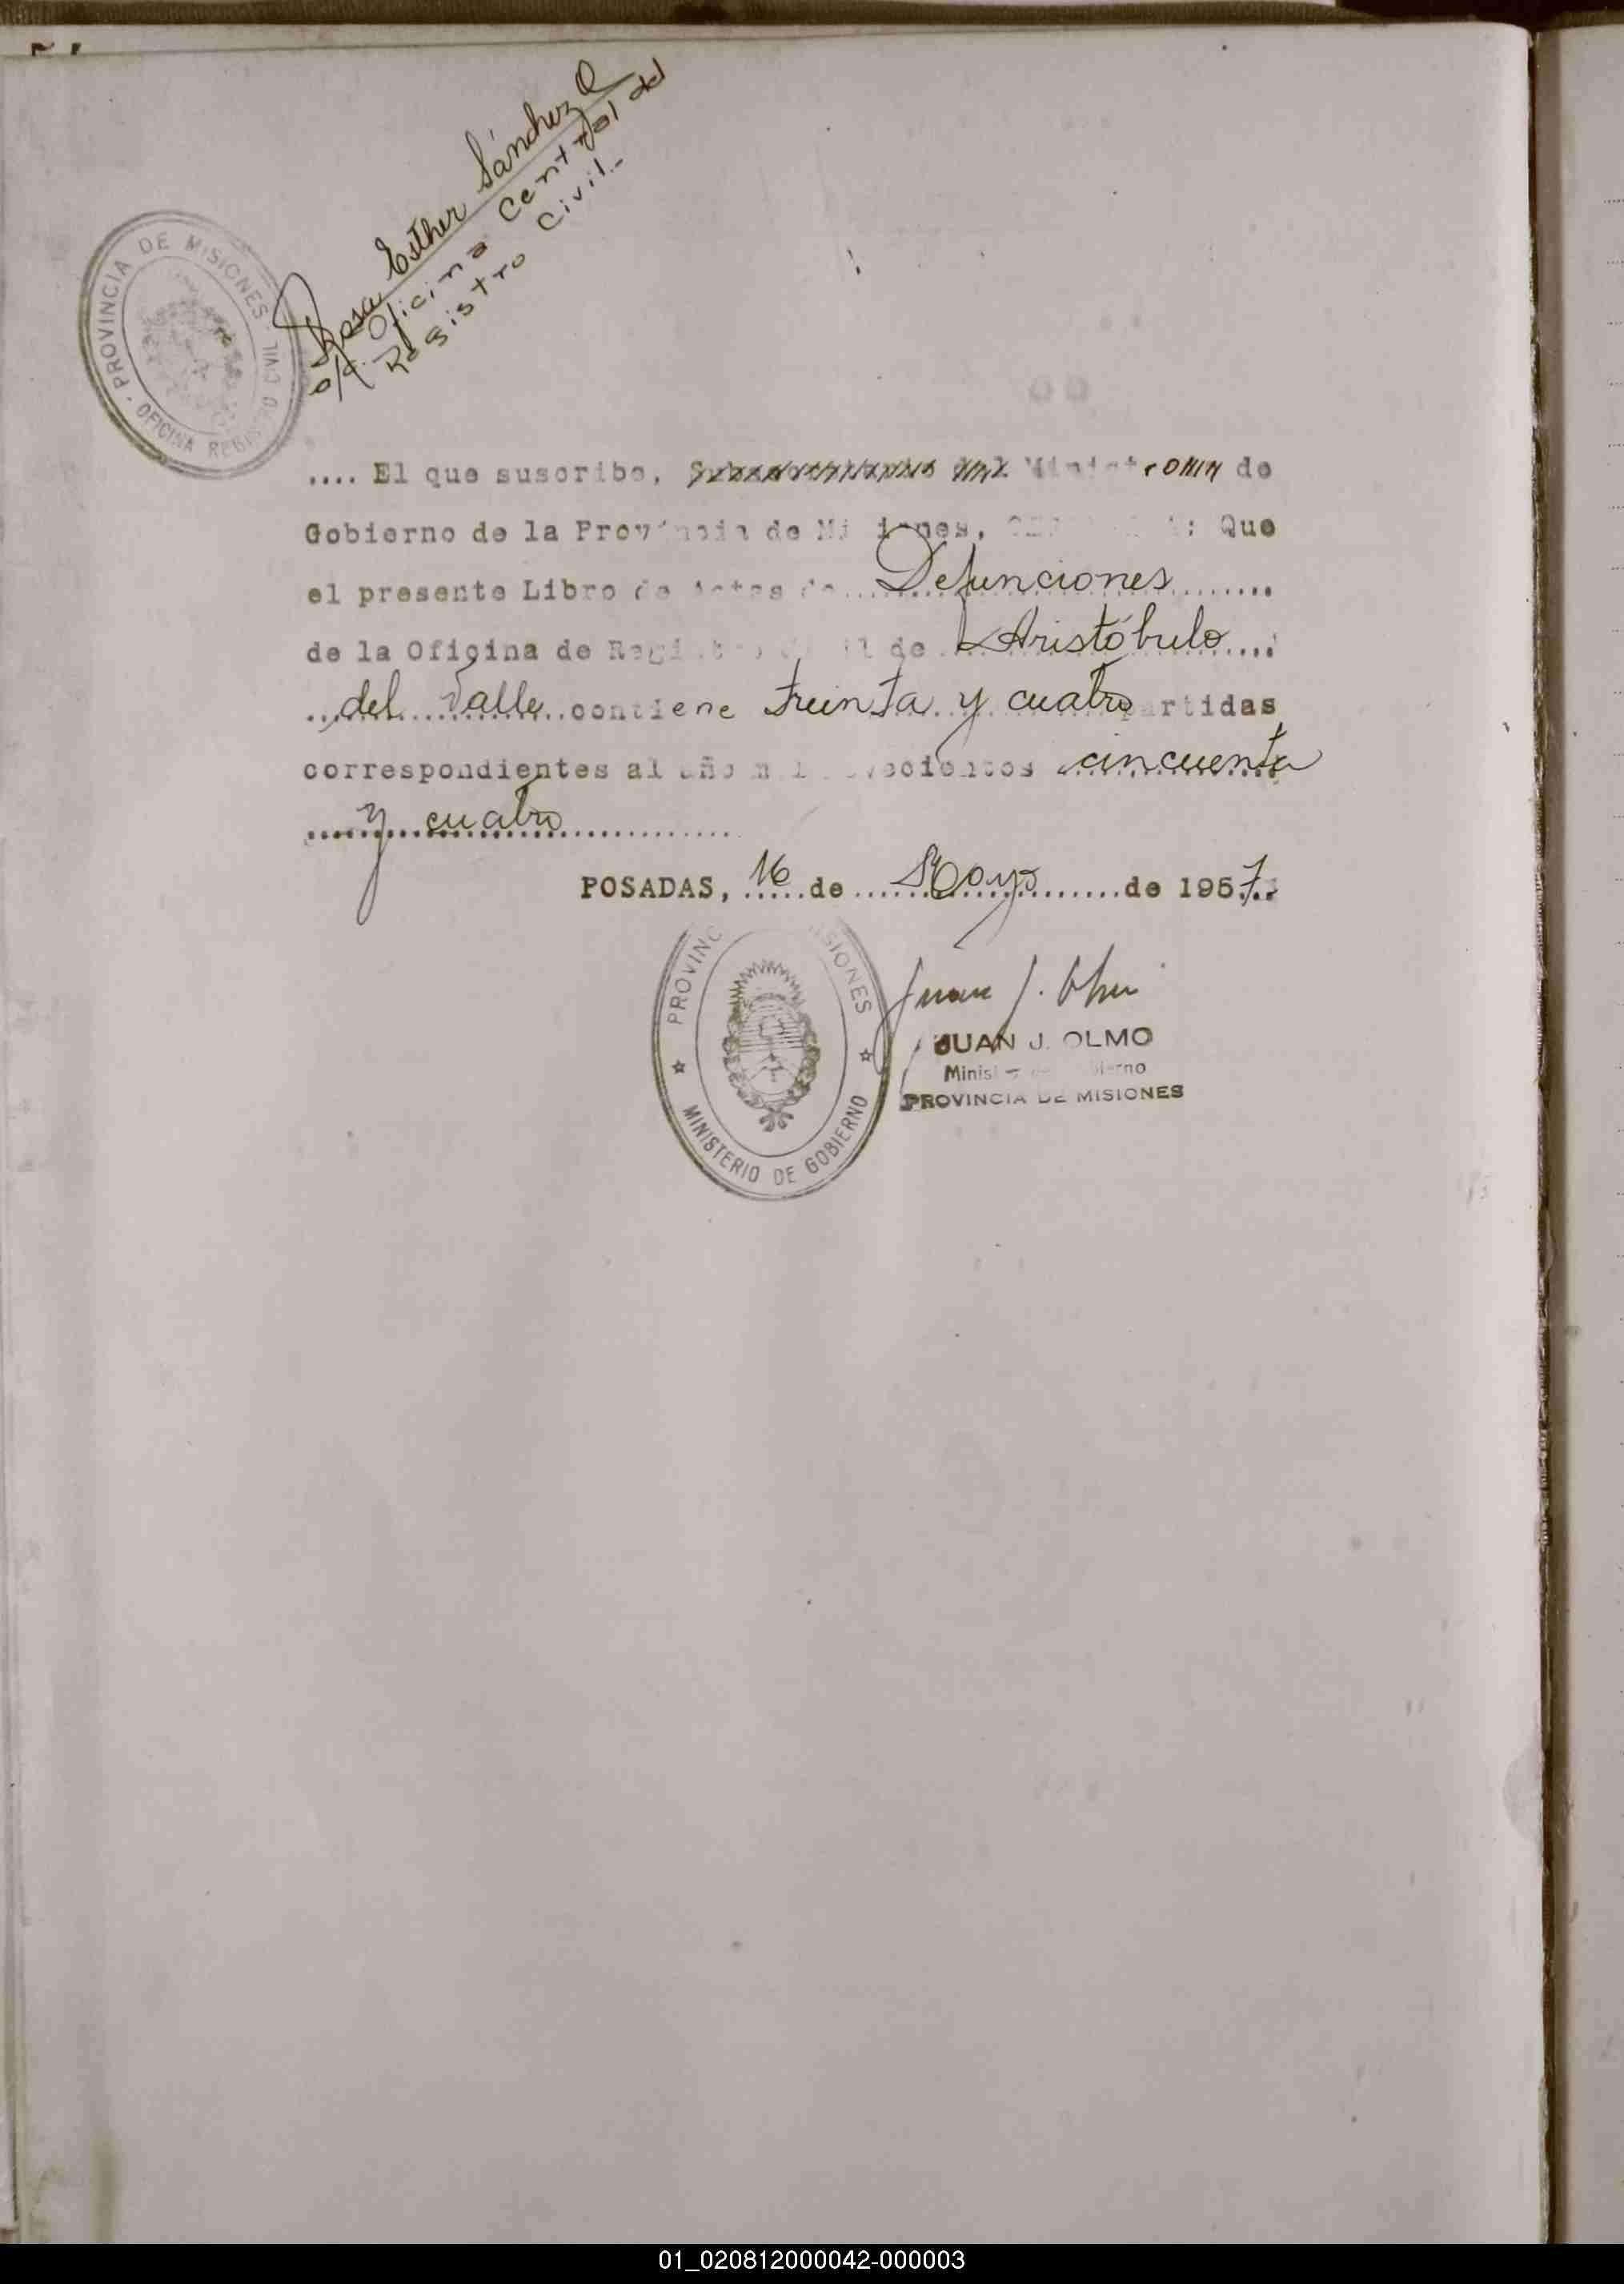 Rosa Esther Sánchez Q
a/c. Oficina Central del
Registro Civil.-
PROVINCIA DE MISIONES
OFICINA REGISTRO CIVIL
.... El que suscribe, Ministro de
Gobierno de la Provincia de Misiones, : Que
el presente Libro de Actas de Defunciones
de la Oficina de Registro Civil de Aristóbulo
del Valle contiene treinta y cuatro partidas
correspondientes al año mil novecientos cincuenta
y cuatro
POSADAS, 16 de Mayo de 1957.
PROVINCIA DE MISIONES
MINISTERIO DE GOBIERNO
Juan J. Olmo
JUAN J. OLMO
Ministro de Gobierno
PROVINCIA DE MISIONES
01_020812000042-000003